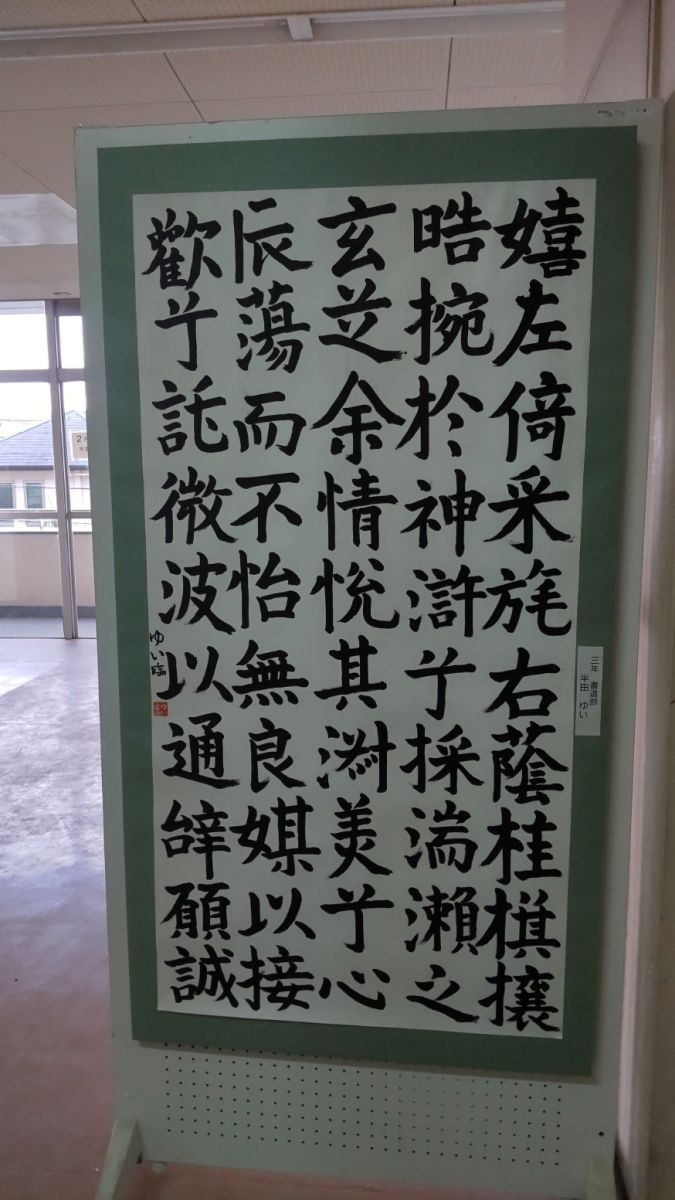 嬉左倚采旄右蔭桂棋攘
晧捥於神滸兮採湍瀨之
玄芝余情悅其淑美兮心
辰蕩而不怡無良媒以接
歡兮託微波以通辝願誠
ゆい臨
三年 書道部
半田 ゆい